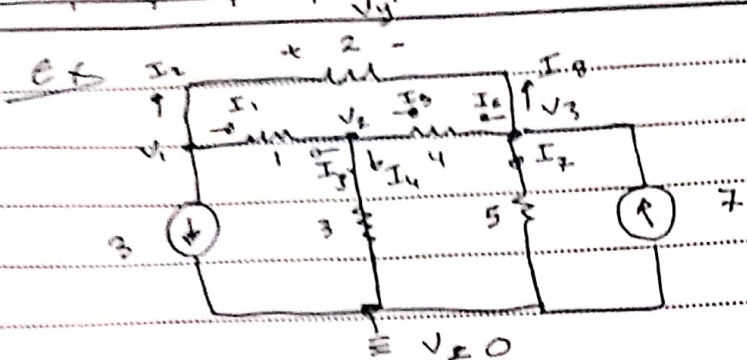 Vy
ex I2 + 2 - I8
I1 V2 I5 I6 V3
V1 1 I3 I4 4 I7
3 3 5 7
V=0